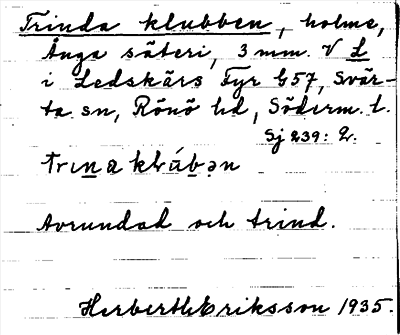 Trinda klubben, holme,
Ånga säteri, 3 mm. V L
i Ledskärs Fyr G57, Svär-
ta sn, Rönö hd, Söderm. l.
Sj 239: 2.
Avrundad och trind.
Herberth Eriksson 1935.